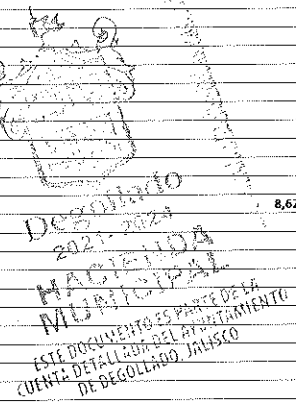 8,62
Degollado
2021-2024
HACIENDA
MUNICIPAL
ESTE DOCUMENTO ES PARTE DE LA
CUENTA DETALLADA DEL AYUNTAMIENTO
DE DEGOLLADO, JALISCO